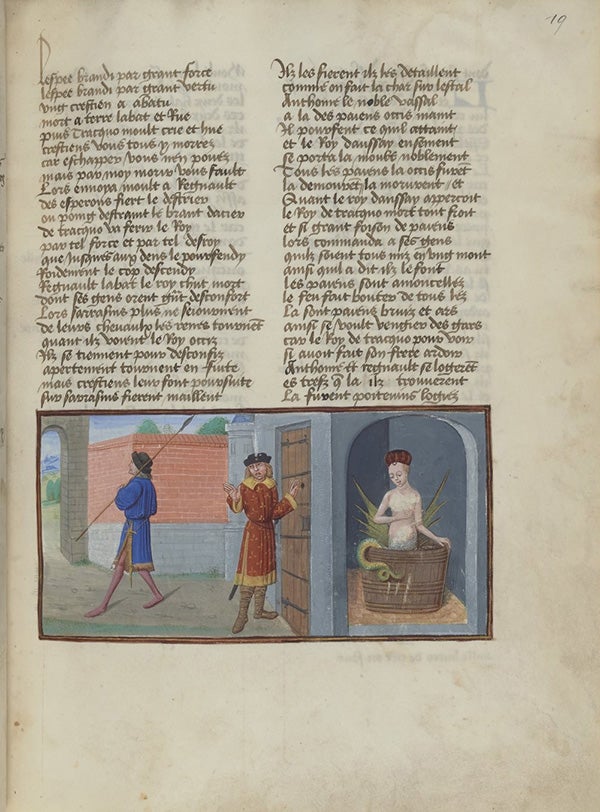 19
Lespee brandi par grant force
Lespee brandi par grant vertu
Ung crestien a abatu
mort a terre labat et Rue
puis Tracquo moult crie et hue
crestiens vous tous y morrez
car eschapper vous nen pouez
mais par moy morir vous fault
Lors ennoya moult a Regnault
des esperons fiert le destrier
ou poing destraint le brant dacier
de tracquo va ferir le Roy
par tel force et par tel desroy
que Jusques aux dens le pourfendy
Roidement le cop descendy
Regnault labat le roy chut mort
dont ses gens orent grāt desconfort
Lors sarrasins plus ne seiournent
de leurs cheuaulx les renes tournent
quant ilz voient le Roy occiz
Ilz se tiennent pour desconfiz
apertement tournent en fuite
mais crestiens leur font poursuite
sur sarrasins fierent maillent
Ilz les fierent ilz les detaillent
comme on fait la char sur lestal
Anthoine le noble vassal
a la des paiens occis maint
Il pourfent ce quil attaint
et le Roy daussay ensement
se porta la moult noblement
Tous les paiens la occis furent
la demourent la moururent / et
Quant le roy daussay appercoit
le Roy de tracquo mort tout froit
et si grant foison de paiens
lors commanda a ses gens
quilz soient tous mis en ung mont
ainsi quil a dit ilz le font
les paiens sont amoncellez
le feu fait bouter de tous lez
La sont paiens bruiz et ars
ainsi se voult vengier des gars
car le Roy de tracquo pour voir
si auoit fait son frere ardoir
Anthoine et regnault se logerent
es trefz q̄ la ilz trouuerent
La furent poiteuins logiez